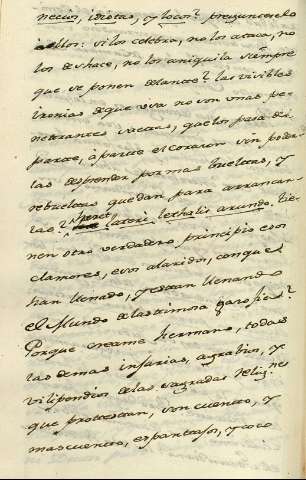 necios, idiotas, y locos? pregunteselo
a ellos: si los celebra, no los ataca, no
los deshace, no los aniquila siempre
que se ponen delante? las visibles
ironias de que usa no son unas pe-
netrantes saetas, que los pasa de
parte, à parte el corazon sin poder-
las desprender por mas bueltas, y
rebueltas que dan para arrancar-
las? hæret lateri lethalis arundo. tie-
nen otro verdadero principio esos
clamores, esos alaridos, con que
han llenado, y estan llenando
el Mundo de lastimosa
Porque creame hermano, todas
las demas injurias, agrabios, y
vilipendios de las sagradas Relig.nes
que protestan, son cuento, y
mas cuento, espantajo, y coco